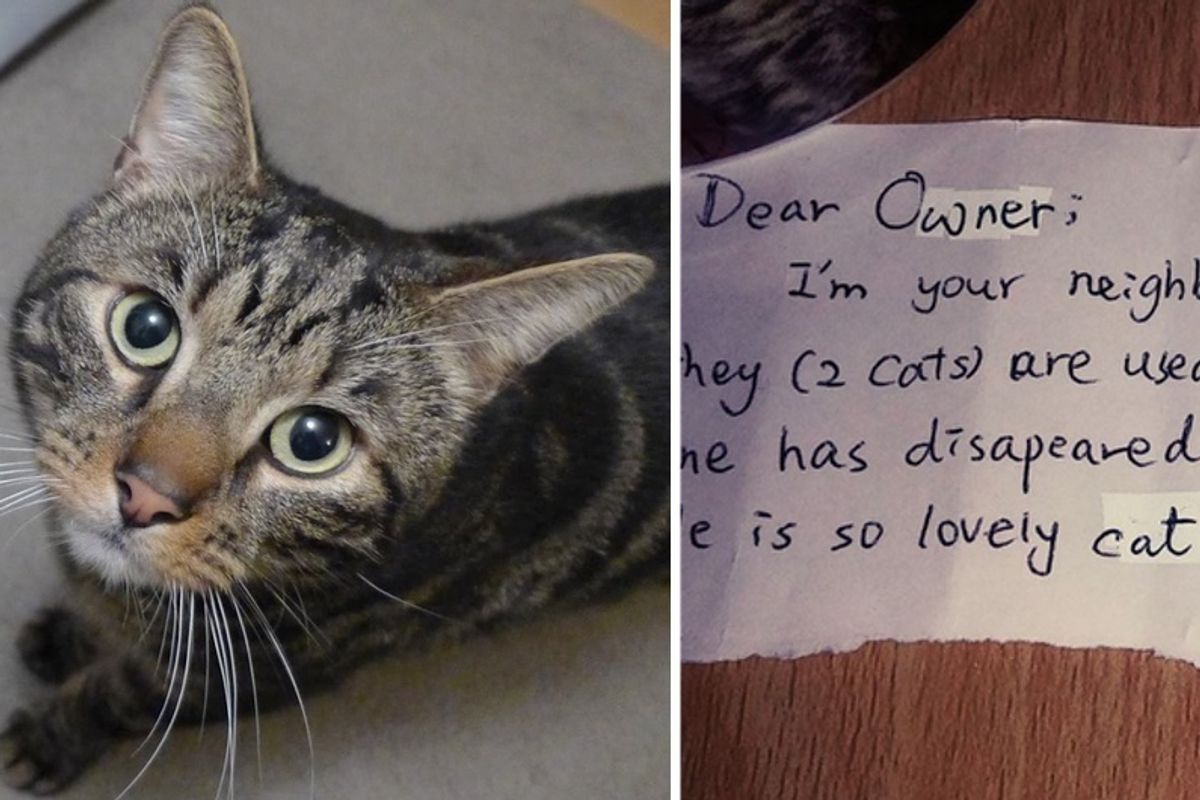 Dear Owner;
I'm your neighb
hey (2 cats) are used
ne has disapeared
e is so lovely cat